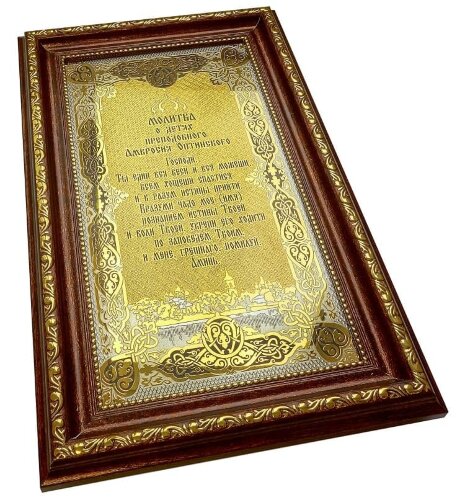 Молитва
о детях
преподобного
Амвросия Оптинского
Господи,
Ты един вся веси и вся можеши,
всем хощеши спастися
и в разум истины приити.
Вразуми чадо мое (имя)
познанием истины Твоей
и воли Твоей, укрепи его ходити
по заповедем Твоим
и мене, грешнаго, помилуй
Аминь.